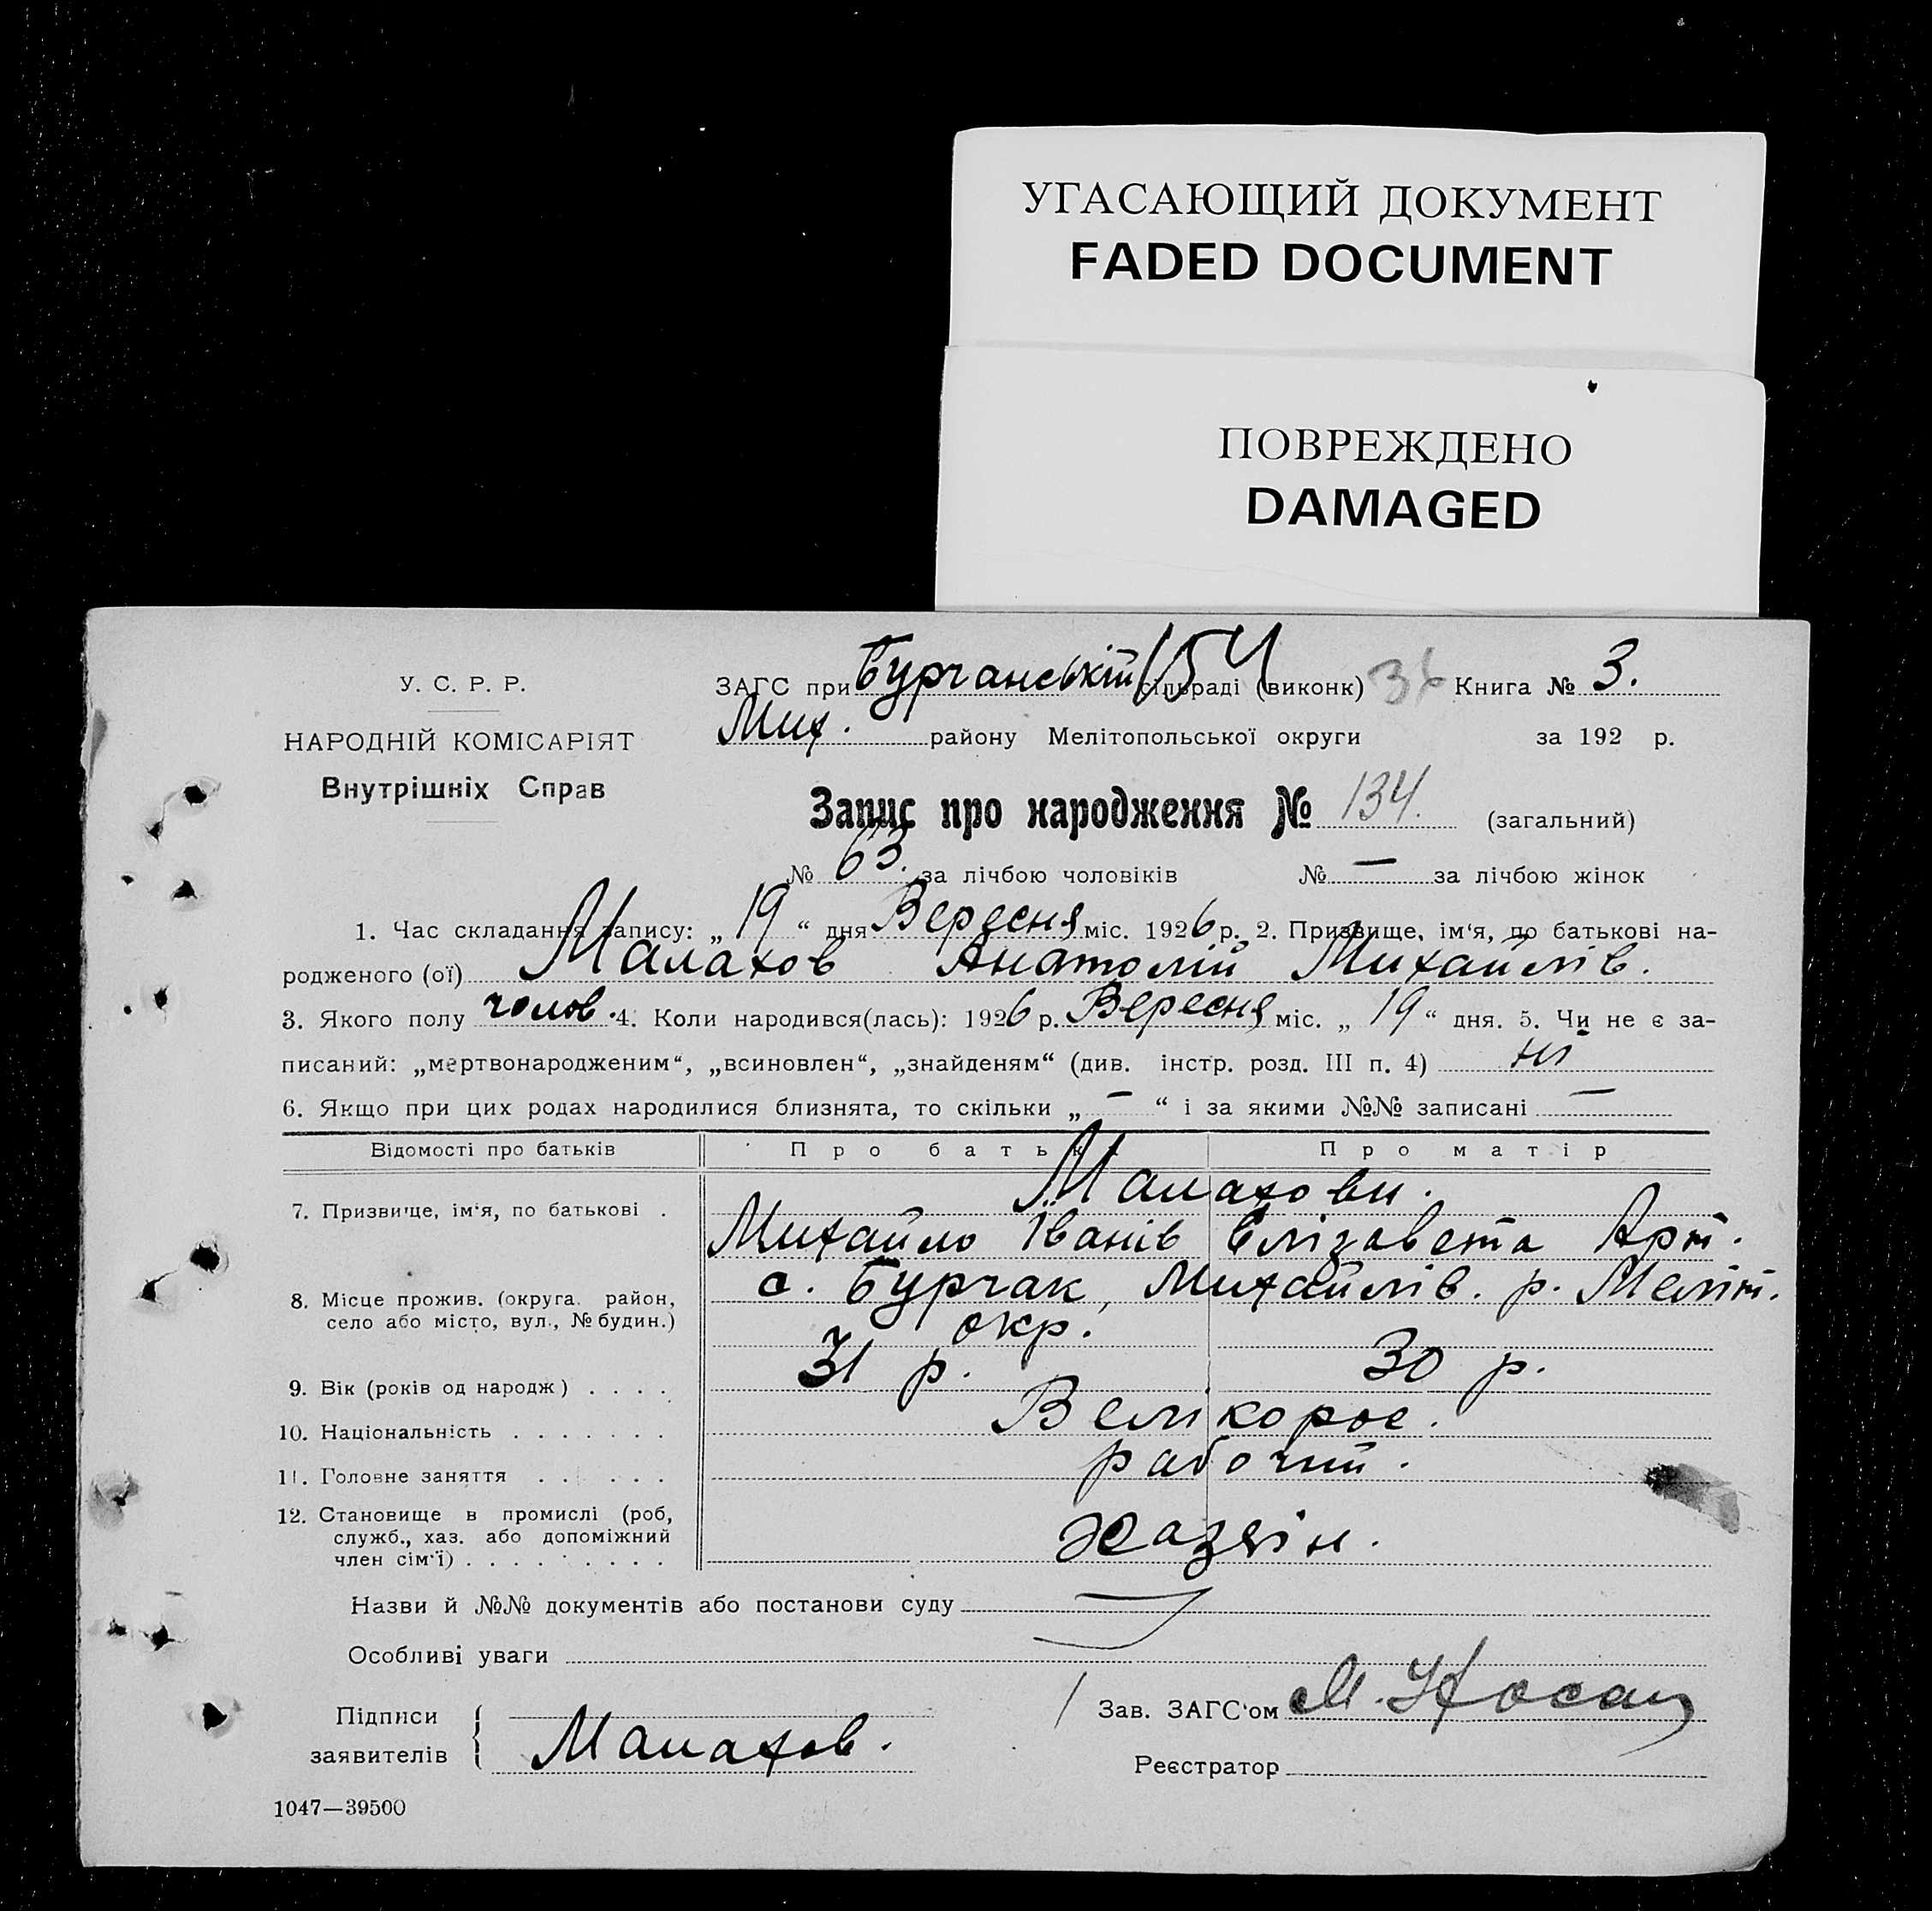 УГАСАЮЩИЙ ДОКУМЕНТ
FADED DOCUMENT
ПОВРЕЖДЕНО
DAMAGED
У. С. Р. Р.
НАРОДНІЙ КОМІСАРІЯТ
Внутрішніх Справ
ЗАГС при Бурчанській сільраді (виконк) 154 36 Книга № 3.
Мих. району Мелітопольської округи за 192 р.
Запис про народження № 134. (загальний)
№ 63. за лічбою чоловіків № — за лічбою жінок
1. Час складання запису: „ 19 “ дня Вересня міс. 1926 р. 2. Призвище, ім‘я, по батькові на-
родженого (ої) Малахов Анатолій Михайлів.
3. Якого полу чолов. 4. Коли народився(лась): 1926 р. Вересня міс. „ 19 “ дня. 5. Чи не є за-
писаний: „мертвонародженим“, „всиновлен“, „знайденям“ (див. інстр. розд. III п. 4) ні
6. Якщо при цих родах народилися близнята, то скільки „ — “ і за якими №№ записані —
Відомості про батьків Про батька Про матір
7. Призвище, ім‘я, по батькові . Малахови.
Михайло Іванів Єлізавета Арт.
8. Місце прожив. (округа. район, с. Бурчак, Михайлів. р. Меліт.
село або місто, вул., № будин.) окр.
9. Вік (років од народж) . . . . 31 р. 30 р.
10. Національність . . . . . . . Велікорос.
11. Головне заняття . . . . . . рабочий.
12. Становище в промислі (роб,
служб., хаз. або допоміжний
член сім‘ї) . . . . . . . . . Хазяін.
Назви й №№ документів або постанови суду —
Особливі уваги
Підписи
заявителів Малахов.
Зав. ЗАГС‘ом М. Носач
Реєстратор
1047—39500